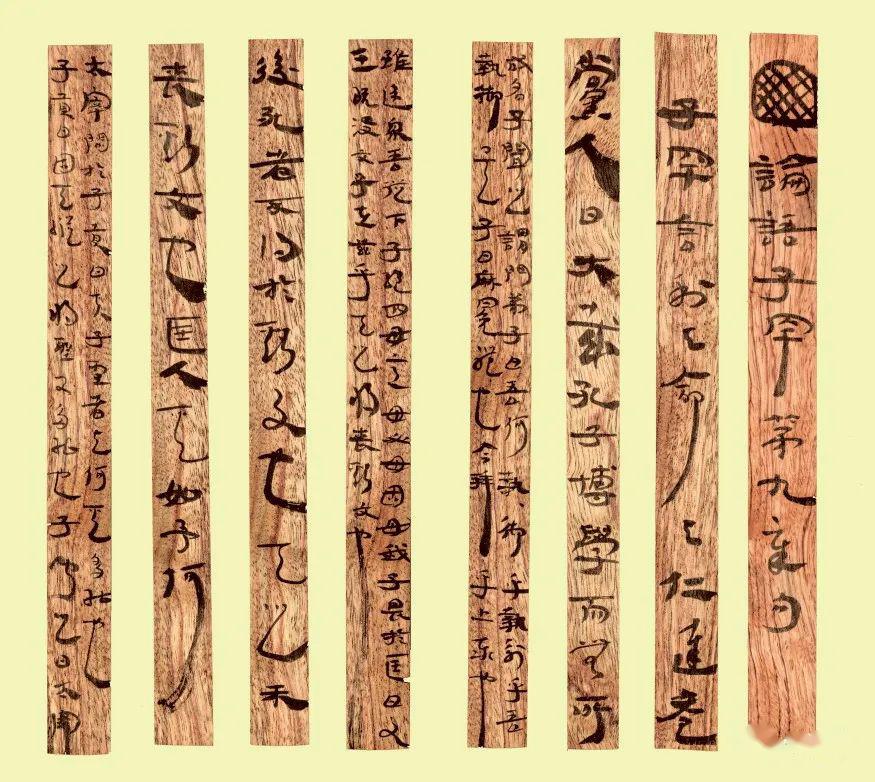 論語子罕第九章句
子罕言利与命与仁達巷
黨人曰大哉孔子博學而無所
成名子聞之謂門弟子曰吾何執執御乎執射乎吾
執御子曰麻冕禮也今拜乎上泰也
雖違衆吾從下子絕四毋意毋必毋固毋我子畏於匡曰文
王既没文不在茲乎天之將喪斯文也
後死者不得於斯文也天之未
喪斯文也匡人其如予何
太宰問於子貢曰夫子聖者与何其多能也
子貢曰固天縱之將聖又多能也子聞之曰太